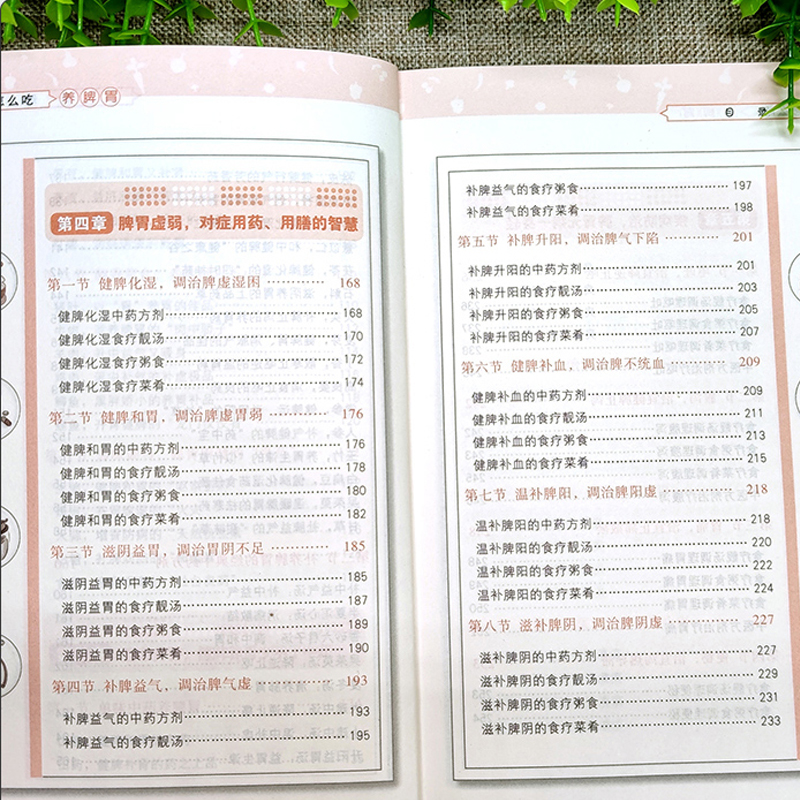 么吃 养脾胃
第四章 脾胃虚弱，对症用药、用膳的智慧
第一节 健脾化湿，调治脾虚湿困 ············ 168
健脾化湿中药方剂 ············ 168
健脾化湿食疗靓汤 ············ 170
健脾化湿食疗粥食 ············ 172
健脾化湿食疗菜肴 ············ 174
第二节 健脾和胃，调治脾虚胃弱 ············ 176
健脾和胃的中药方剂 ············ 176
健脾和胃的食疗靓汤 ············ 178
健脾和胃的食疗粥食 ············ 180
健脾和胃的食疗菜肴 ············ 182
第三节 滋阴益胃，调治胃阴不足 ············ 185
滋阴益胃的中药方剂 ············ 185
滋阴益胃的食疗靓汤 ············ 187
滋阴益胃的食疗粥食 ············ 189
滋阴益胃的食疗菜肴 ············ 190
第四节 补脾益气，调治脾气虚 ············ 193
补脾益气的中药方剂 ············ 193
补脾益气的食疗靓汤 ············ 195
目 录
补脾益气的食疗粥食 ············ 197
补脾益气的食疗菜肴 ············ 198
第五节 补脾升阳，调治脾气下陷 ············ 201
补脾升阳的中药方剂 ············ 201
补脾升阳的食疗靓汤 ············ 203
补脾升阳的食疗粥食 ············ 205
补脾升阳的食疗菜肴 ············ 207
第六节 健脾补血，调治脾不统血 ············ 209
健脾补血的中药方剂 ············ 209
健脾补血的食疗靓汤 ············ 211
健脾补血的食疗粥食 ············ 213
健脾补血的食疗菜肴 ············ 215
第七节 温补脾阳，调治脾阳虚 ············ 218
温补脾阳的中药方剂 ············ 218
温补脾阳的食疗靓汤 ············ 220
温补脾阳的食疗粥食 ············ 222
温补脾阳的食疗菜肴 ············ 224
第八节 滋补脾阴，调治脾阴虚 ············ 227
滋补脾阴的中药方剂 ············ 227
滋补脾阴的食疗靓汤 ············ 229
滋补脾阴的食疗粥食 ············ 231
滋补脾阴的食疗菜肴 ············ 233